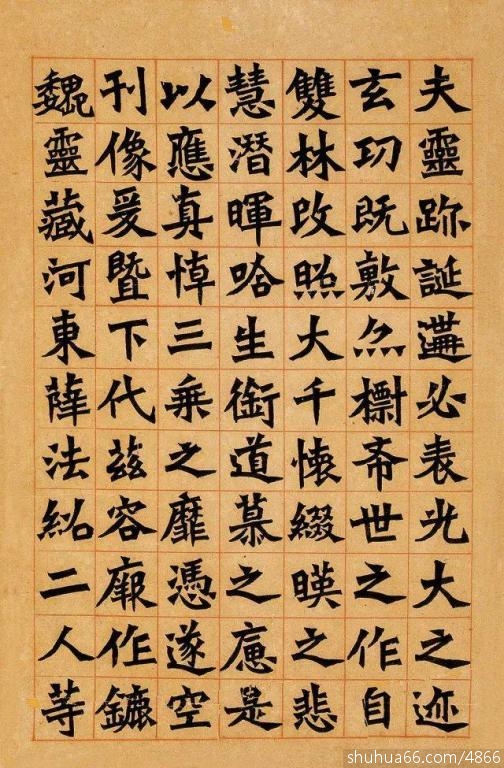 夫靈跡誕遘必表光大之迹
玄功既敷亦標希世之作自
雙林改照大千懷綴暎之悲
慧潛暉唅生銜道慕之憶是
以應真悼三乘之靡憑遂空
刊像爰暨下代茲容廠作鑣
魏靈藏河東薛法紹二人等
shuhua66.com/4866